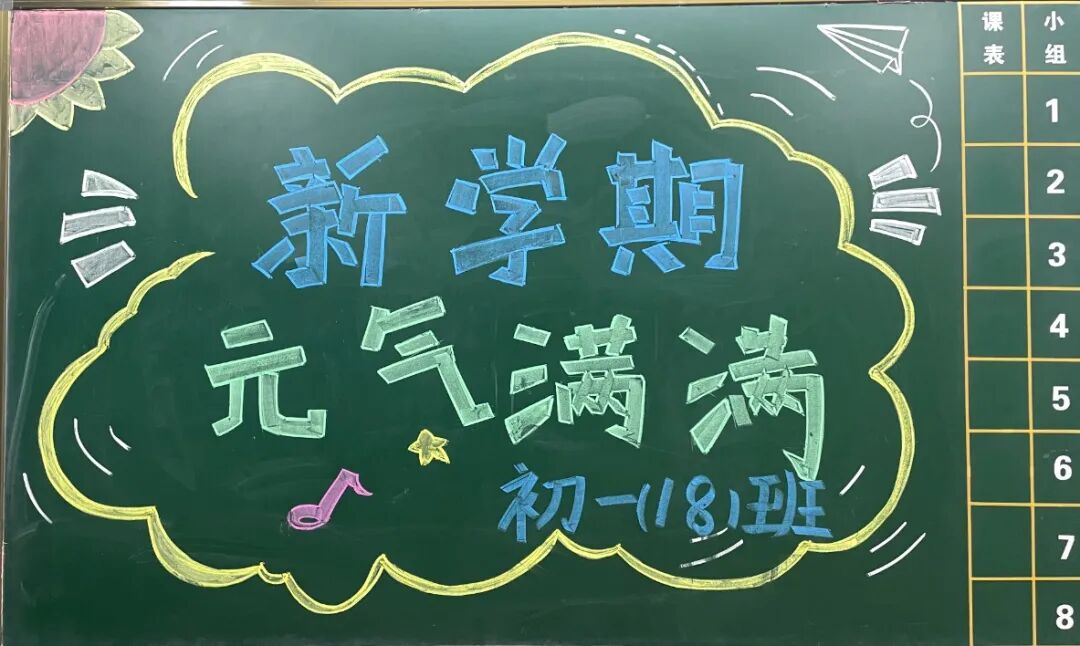 新学期
元气满满
初一(18)班
课表 小组
1
2
3
4
5
6
7
8